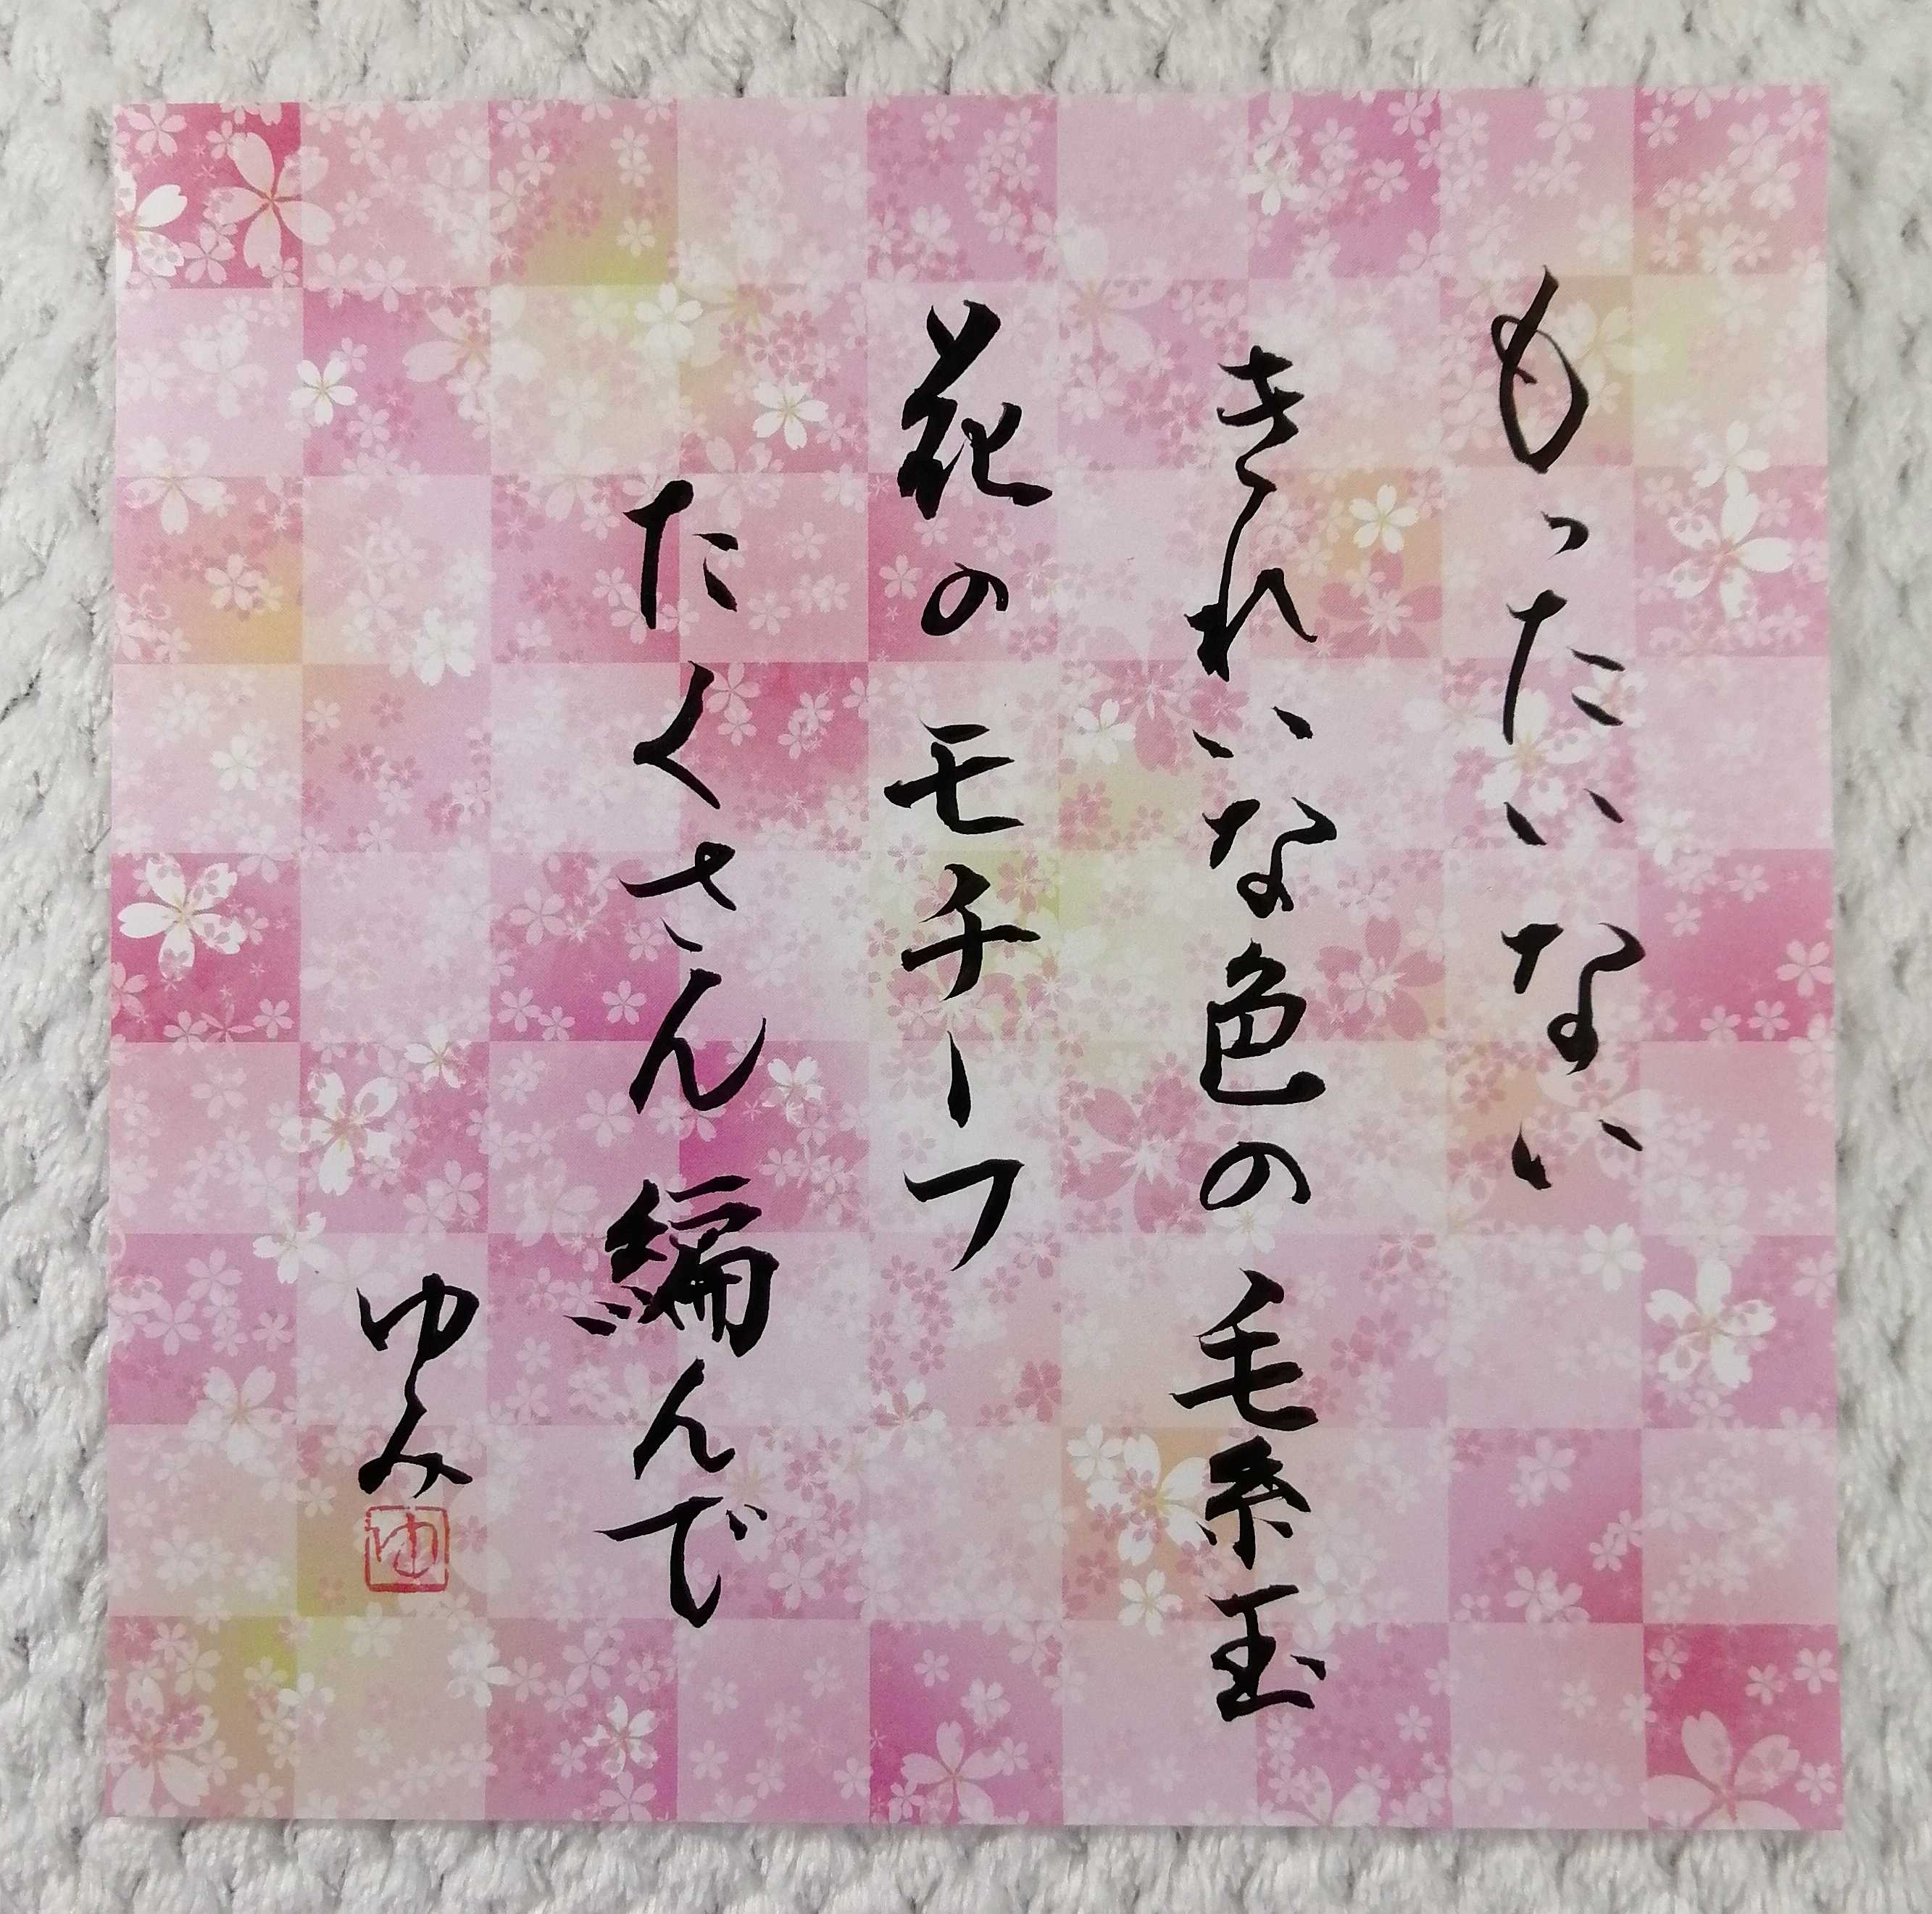 もったいない
きれいな色の毛糸玉
花のモチーフ
たくさん編んで
ゆみ
ゆ